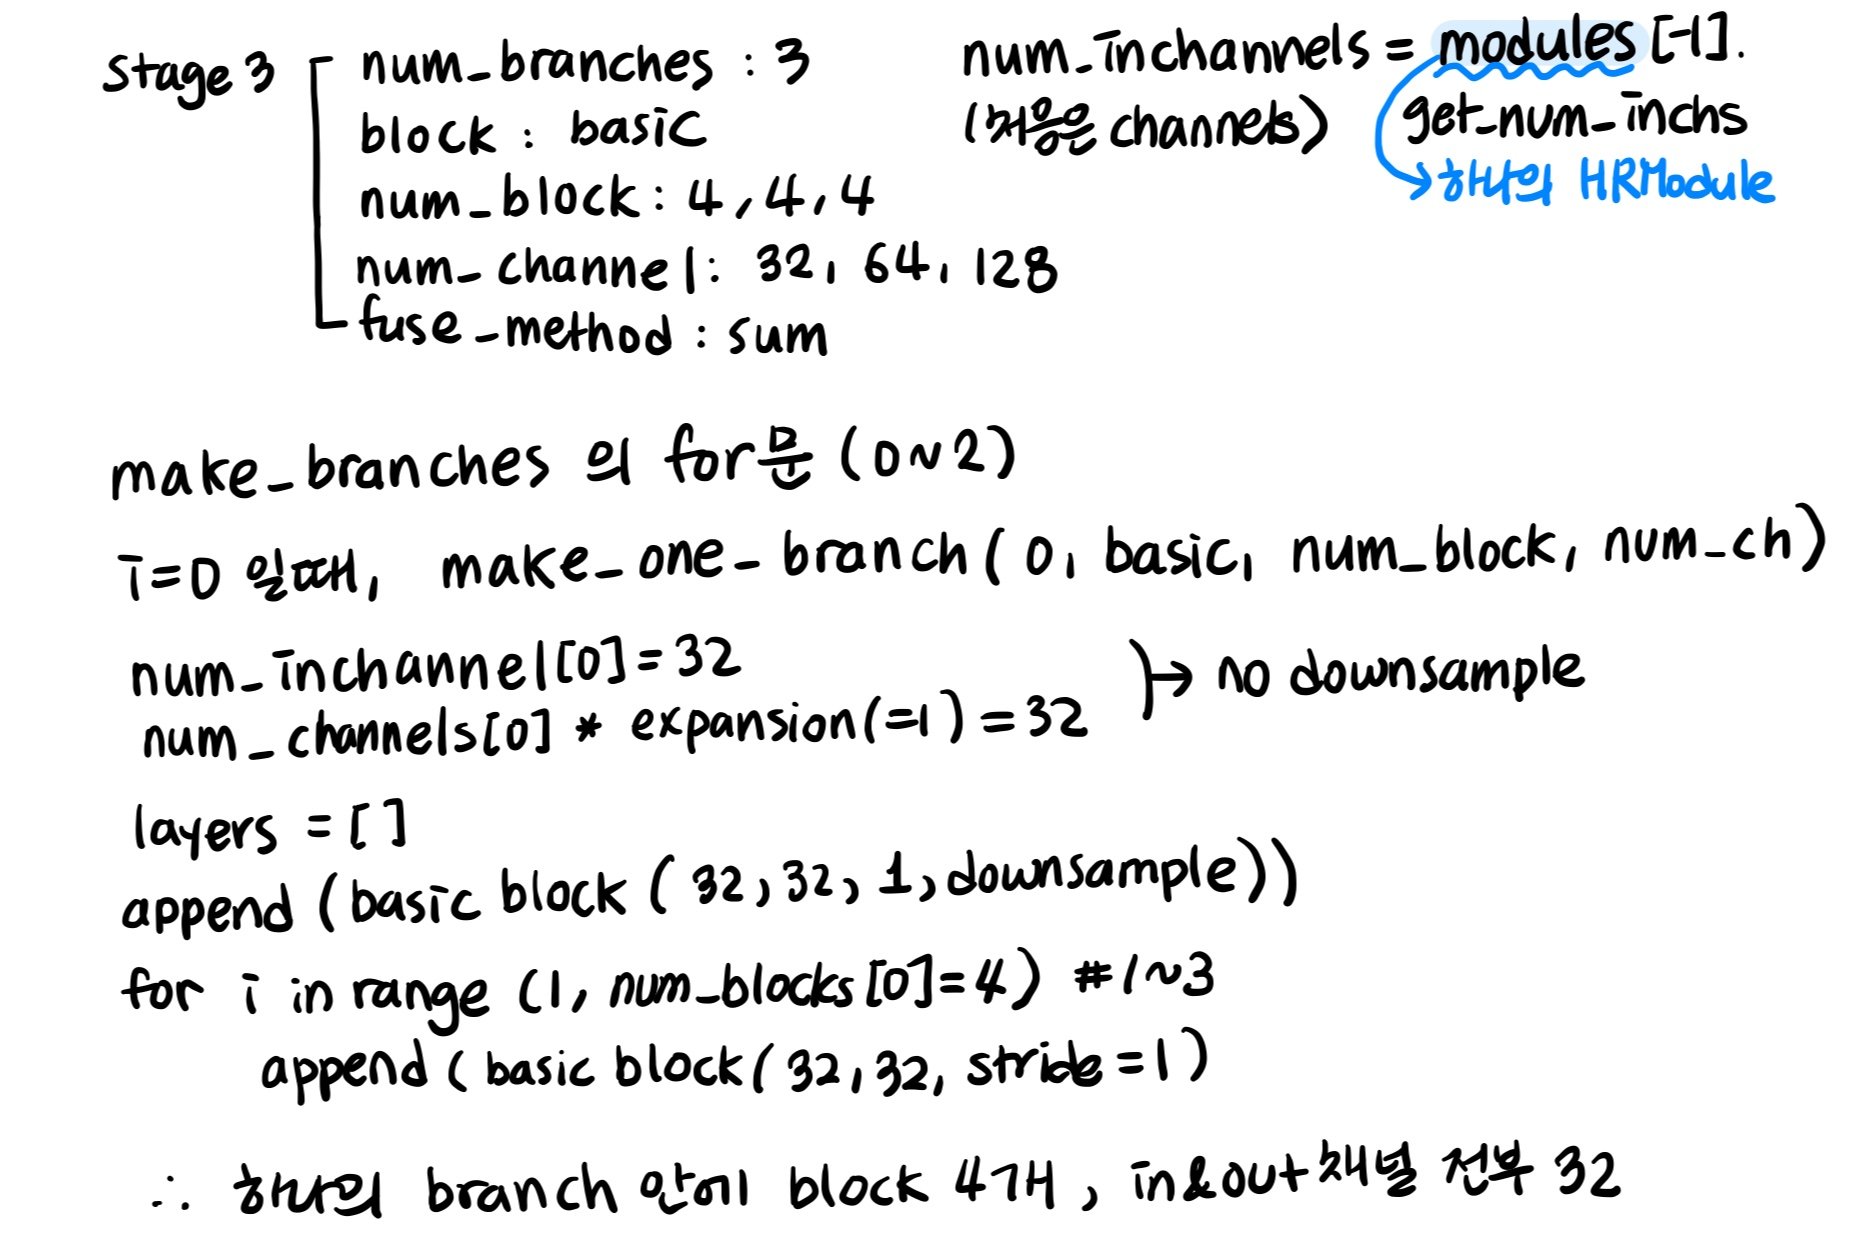 stage 3
num_branches : 3
block : basic
num_block : 4, 4, 4
num_channel : 32, 64, 128
fuse_method : sum
num_inchannels = modules[-1].
(처음은 channels) get_num_inchs
→ 하나의 HRModule
make_branches 의 for문 (0~2)
i=0 일때, make_one_branch( 0, basic, num_block, num_ch)
num_inchannel[0]=32
num_channels[0] * expansion(=1) = 32
→ no downsample
layers = [ ]
append (basic block ( 32, 32, 1, downsample))
for i in range (1, num_blocks[0]=4) #1~3
append ( basic block( 32, 32, stride=1)
∴ 하나의 branch 안에 block 4개, in&out 채널 전부 32